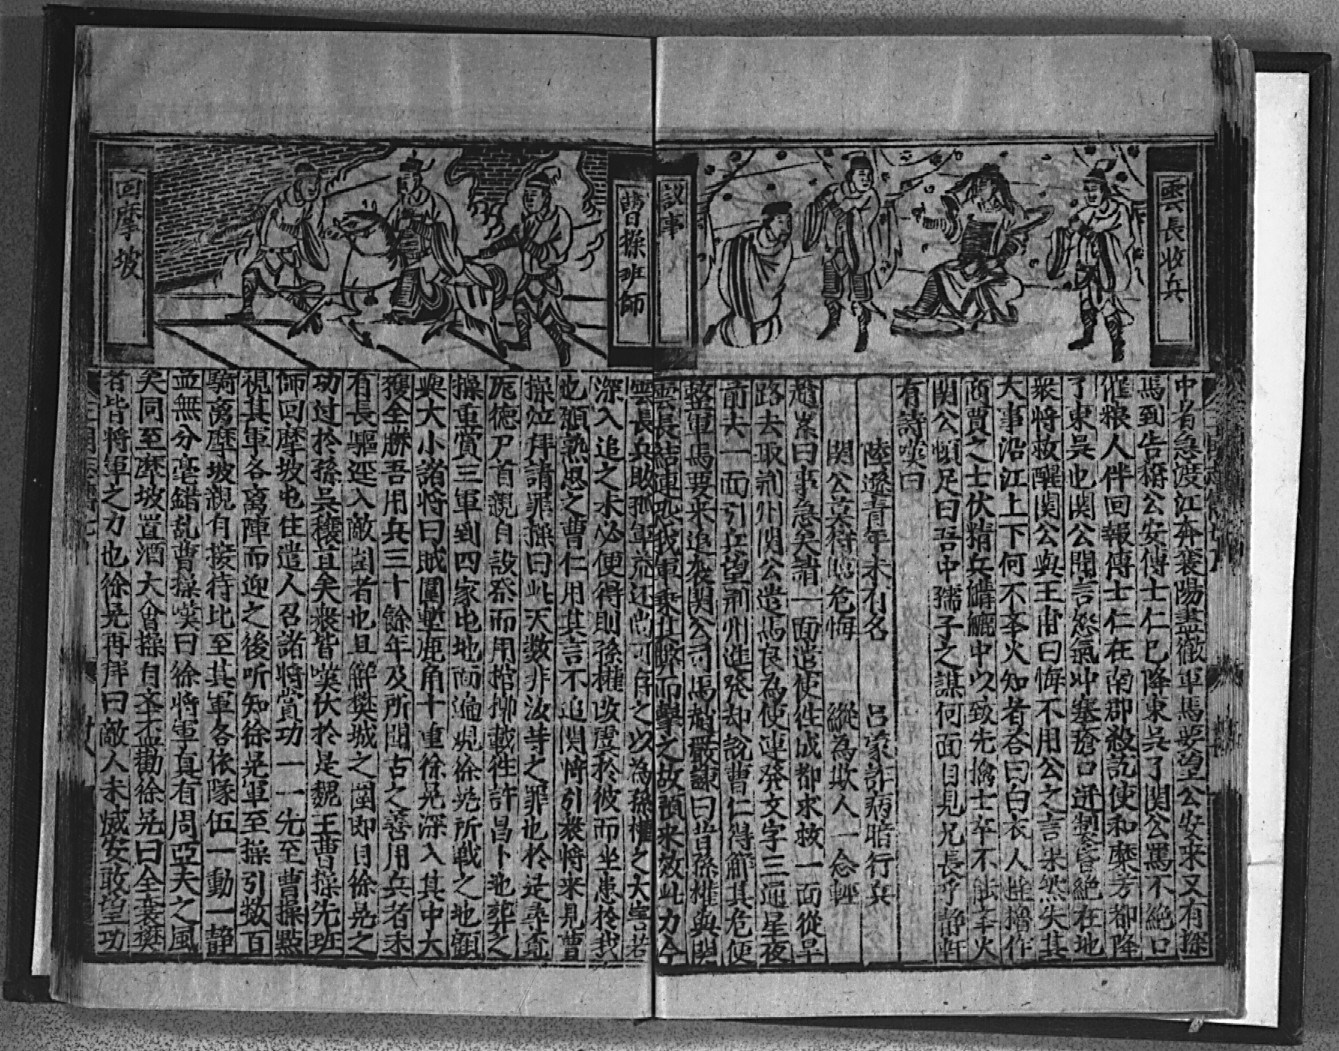 雲長收兵
議事
中者急渡江奔襄陽盡徹軍馬要望公安來又有探
馬到告稱公安傅士仁已降東吳了関公罵不絕口
催粮人伴回報傅士仁在南郡殺訖使和糜芳都降
了東吳也関公聞言怒氣冲塞瘡口迸裂昏絕在地
衆將救醒関公與王甫曰悔不用公之言果然失其
大事沿江上下何不舉火知者荅曰白衣人搖擼作
商賈之士伏精兵䑦䑠中以致先擒士卒不能舉火
関公頓足曰吾中孺子之謀何面目見兄長乎静軒
有詩嘆曰
陸遜青年未有名 呂蒙詐病暗行兵
関公莫待臨危悔 縱為欺人一念輕
趙累曰事急矣請一面遣使往成都求救一面從旱
路去取荆州関公遣馬良為使連発文字三通星夜
前去一面引兵望荆州進発却說曹仁得觧其危便
整軍馬要來追襲関公司馬趙儼諫曰昔孫權與関
雲長結連恐我軍乘其弊而擊之故預來效此力今
雲長兵敗孤軍奔迸尚可存之以為孫權之大害若
深入追之未必便得則孫權改虞於彼而坐患於我
也願熟思之曹仁用其言不追関將引衆將來見曹
操泣拜請罪操曰此天數非汝等之罪也於是尋覔
厐德尸首親自設祭而用棺槨載往許昌卜地葬之
操重賞三軍到四冢屯地而遍覌徐晃所戰之地顧
與大小諸將曰賊圍塹鹿角十重徐晃深入其中大
獲全勝吾用兵三十餘年及所聞古之善用兵者未
有長驅逕入敵圍者也且觧樊城之圍即目徐晃之
功过於孫吳穰苴矣衆皆嘆伏於是魏王曹操先班
師回摩坡屯住遣人召諸將賞功一一先至曹操㸃
視其軍各离陣而迎之後听知徐晃軍至操引数百
騎离摩坡親自接待比至其軍各依隊伍一動一静
並無分毫錯乱曹操嘆曰徐將軍真有周亞夫之風
矣同至摩坡置酒大會操自奉盃勸徐晃曰全襄樊
者皆將軍之力也徐晃再拜曰敵人未㓕安敢望功
曹操班師
回摩坡